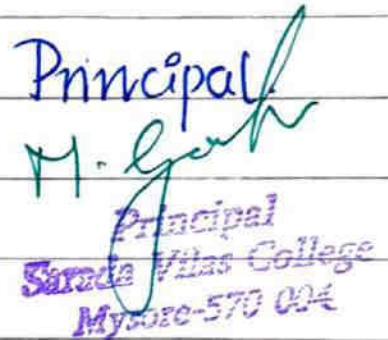 Principal.
Principal
Sarada Vilas College
Mysore-570 004